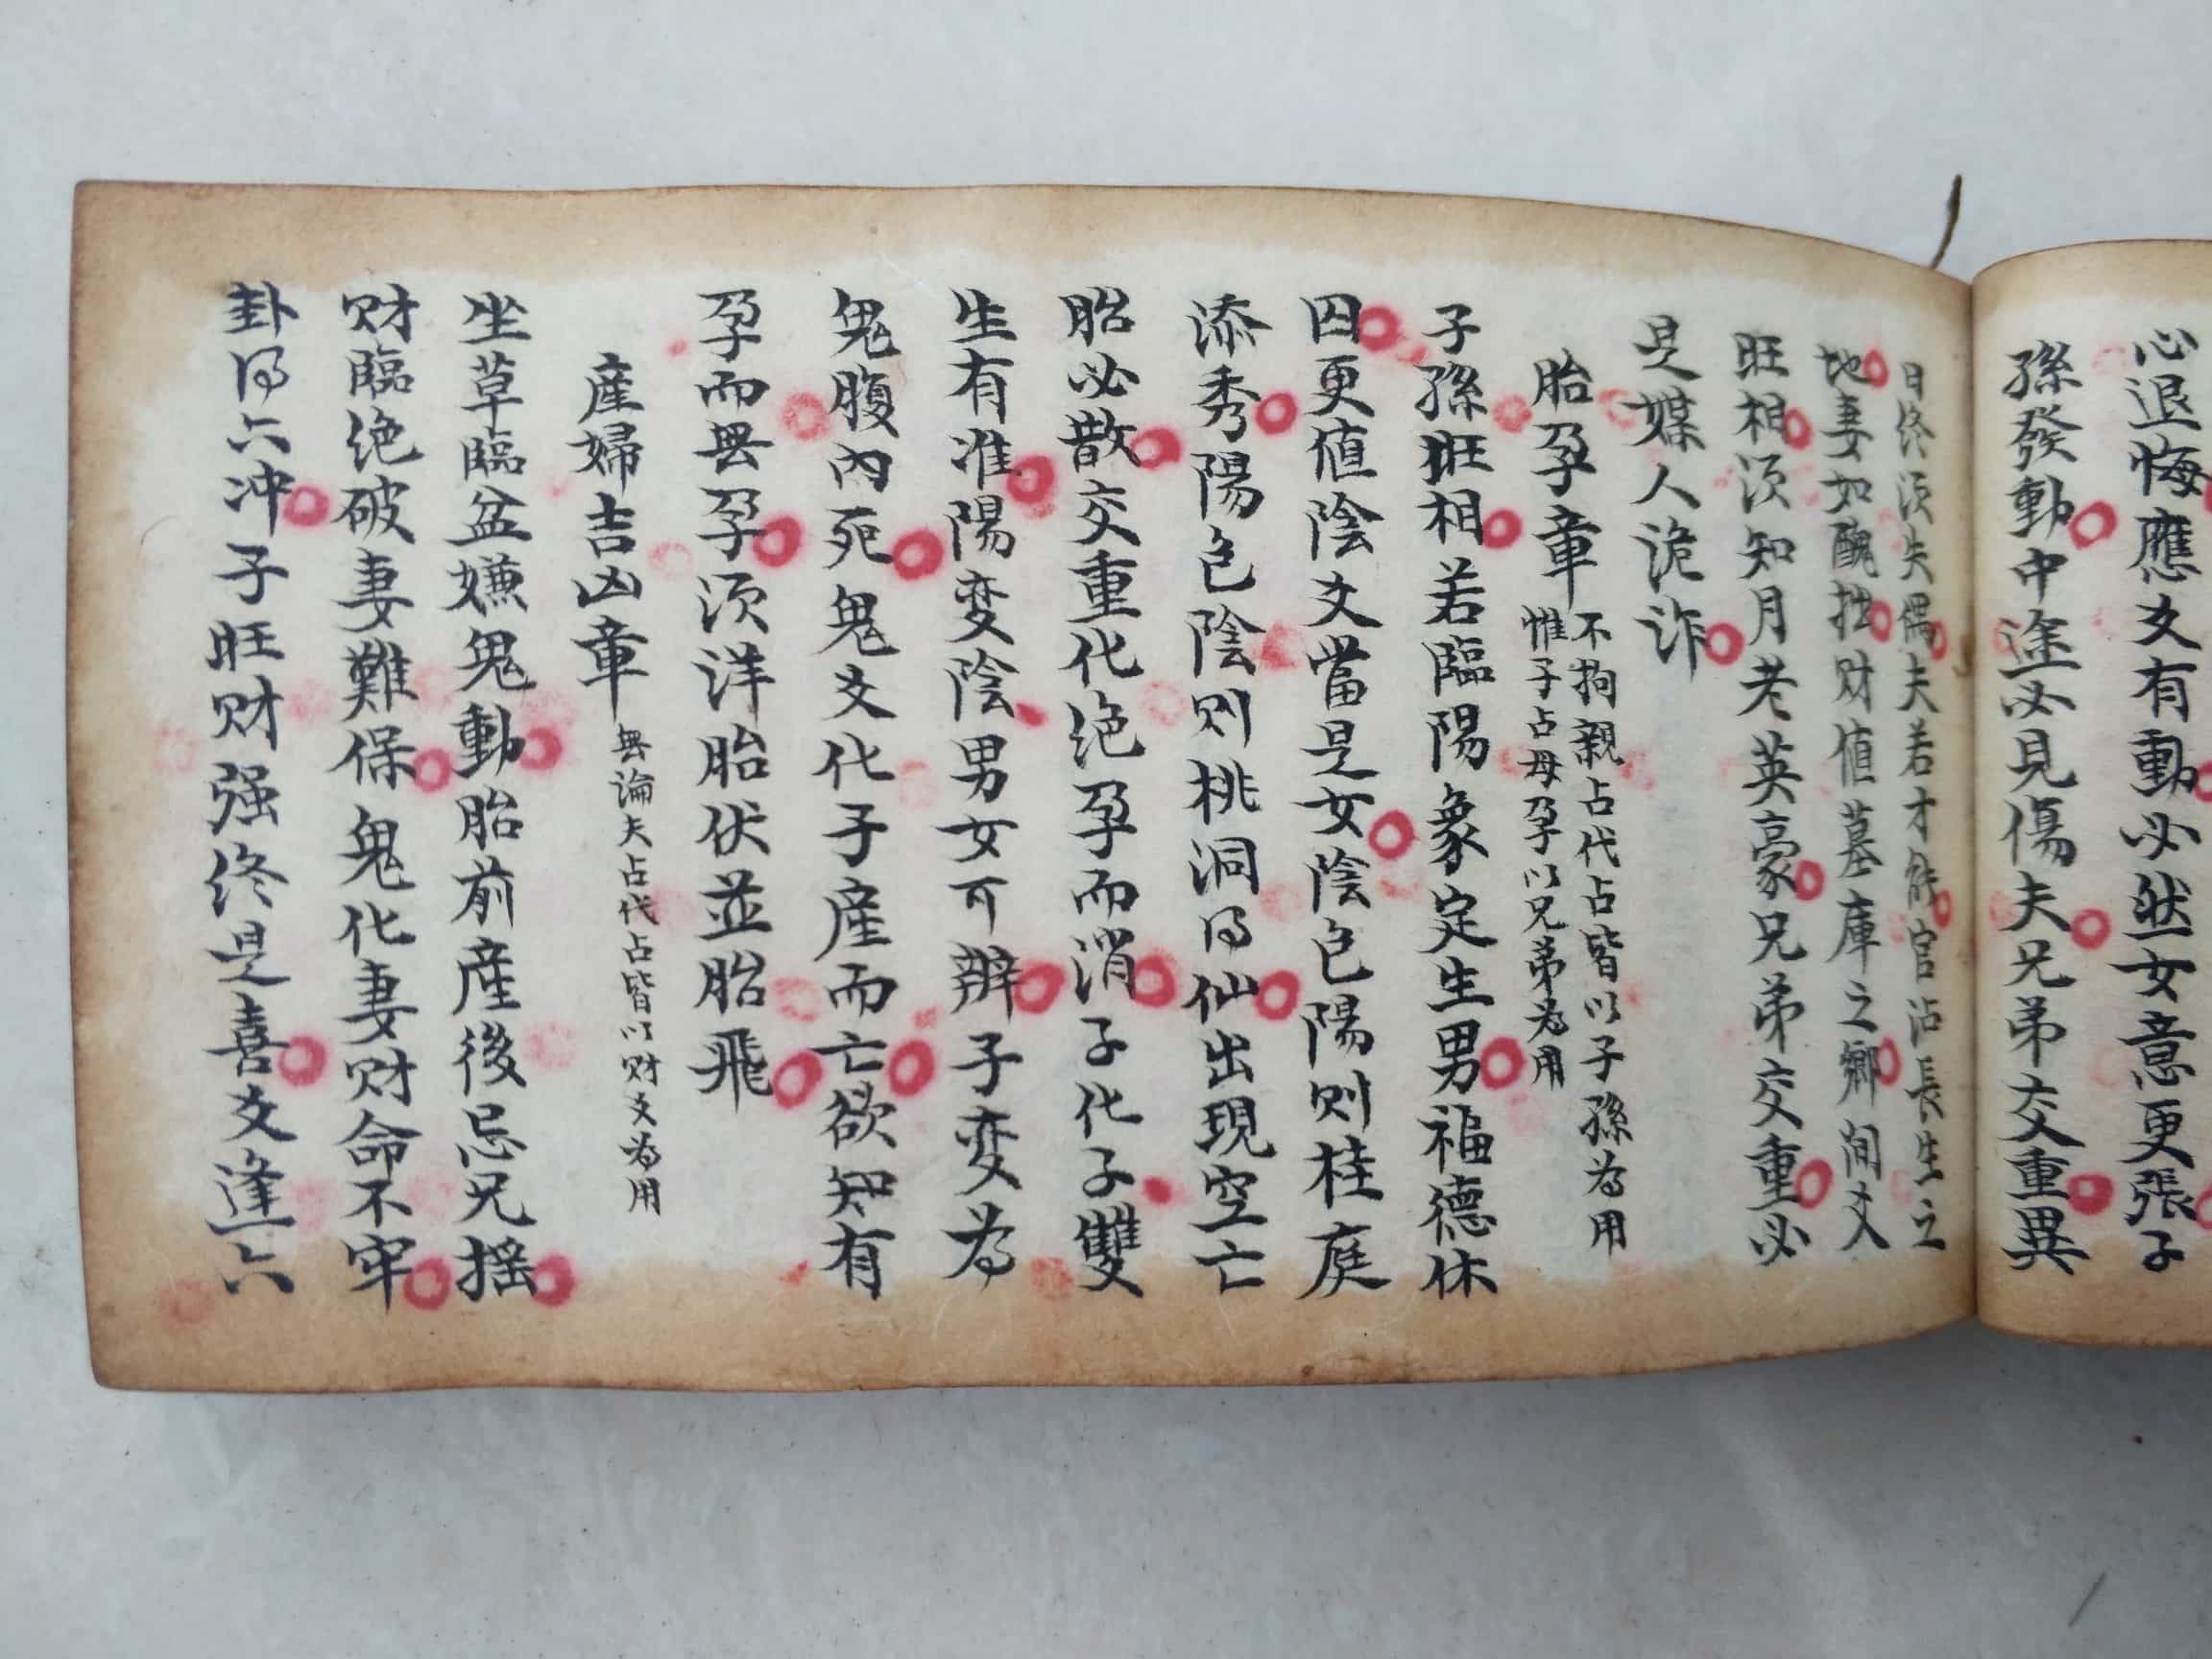 心退悔應爻有動必然女意更張子
孫發動中途必見傷夫兄弟交重異
日終須失偶夫若才能官沾長生之
地妻如醜拙财值墓庫之鄉间爻
旺相须知月老英豪兄弟交重必
是媒人诡诈
胎孕章
不拘親占代占皆以子孫為用
惟子占母孕以兄弟為用
子孫旺相若臨陽象定生男福德休
囚更值陰爻當是女陰色陽则桂庭
添秀陽色陰则桃洞得仙出現空亡
胎必散交重化绝孕而消子化子雙
生有准陽变陰男女可辦子变為
鬼腹内死鬼爻化子産而亡欲知有
孕而無孕须洋胎伏並胎飛
産婦吉凶章
無論夫占代占皆以财爻為用
坐草臨盆嫌鬼動胎前産後忌兄摇
财臨绝破妻難保鬼化妻财命不牢
卦得六冲子旺财强终是喜爻逢六